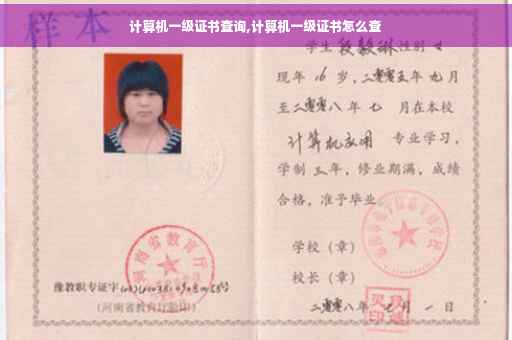 计算机一级证书查询,计算机一级证书怎么查
样本
学生 段毅琳 性别 女
现年 16 岁，二零零五年 九 月
至二零零八 年 七 月在本校
计算机应用 专业学习，
学制 三 年，修业期满，成绩
合格，准予毕业
学校（章）
校长（章）
二零零八年 月 一 日
河南省教育厅
豫教职专证字
(河南省教育厅验印)